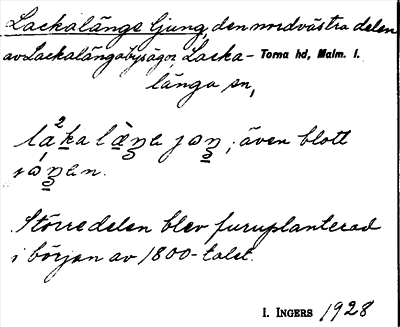 Lackalänga ljung, den nordvästra delen
av Lackalängabys ägor, Lacka- Torna hd, Malm. l.
länga sn,
även blott
Större delen blev furuplanterad
i början av 1800-talet.
I. INGERS 1928